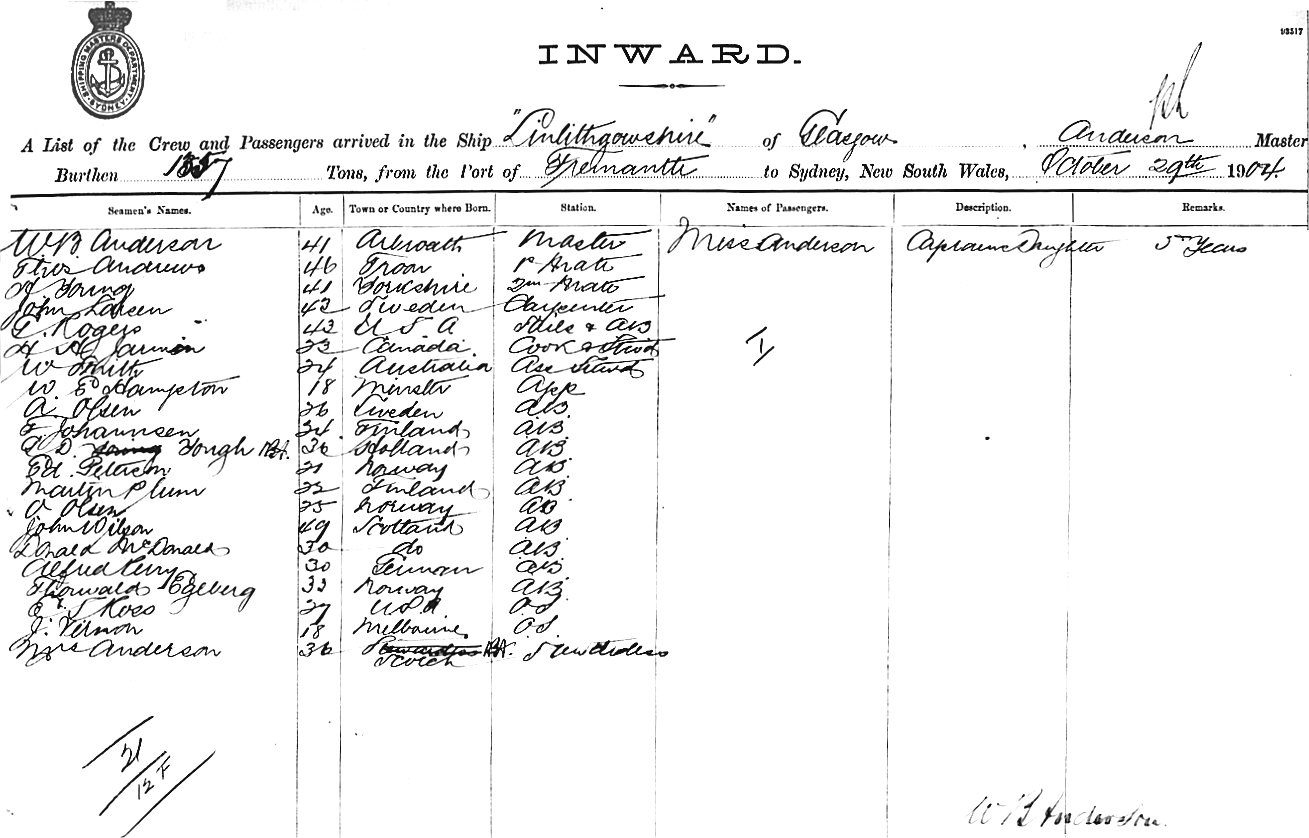 SHIPPING MASTERS DEPARTMENT SYDNEY
93517
INWARD.
A List of the Crew and Passengers arrived in the Ship "Linlithgowshire" of Glasgow, Anderson Master
Burthen 1357 Tons, from the Port of Fremantle to Sydney, New South Wales, October 29th 1904
Seamen's Names. Age. Town or Country where Born. Station. Names of Passengers. Description. Remarks.
W.B. Anderson 41 Arbroath Master Miss Anderson Captains Daughter 5 Years
Thos Andrews 46 Troon 1st Mate
A Young 41 Yorkshire 2nd Mate
John Larsen 42 Sweden Carpenter
G. Rogers 43 U S A Sails & AB
H A Jarmin 23 Canada Cook & Stwd
W Smith 24 Australia Ass Stwd
W. Ed Hampton 18 Minster App
A. Olsen 26 Sweden AB
F Johannsen 34 Finland AB
D. Young Yough 36 Holland AB
Ed. Peterson 21 Norway AB
Martin Plum 22 Finland AB
O Olsen 25 Norway AB
John Wilson 49 Scotland AB
Donald McDonald 30 do AB
Alfred 30 German AB
Thorwald Egeberg 33 Norway AB
27 U.S.A. O.S
J. Vernon 18 Melbourne O.S.
Mrs Anderson 36 Stewardess Stewardess
Scotch
21
12 F
W B Anderson.